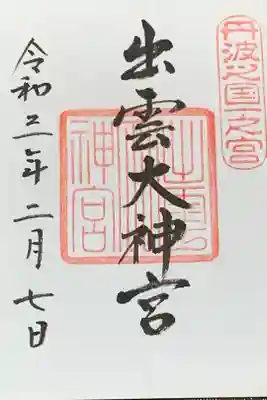 丹波之国一之宮
出雲大神宮
出雲
神宮
令和三年二月七日